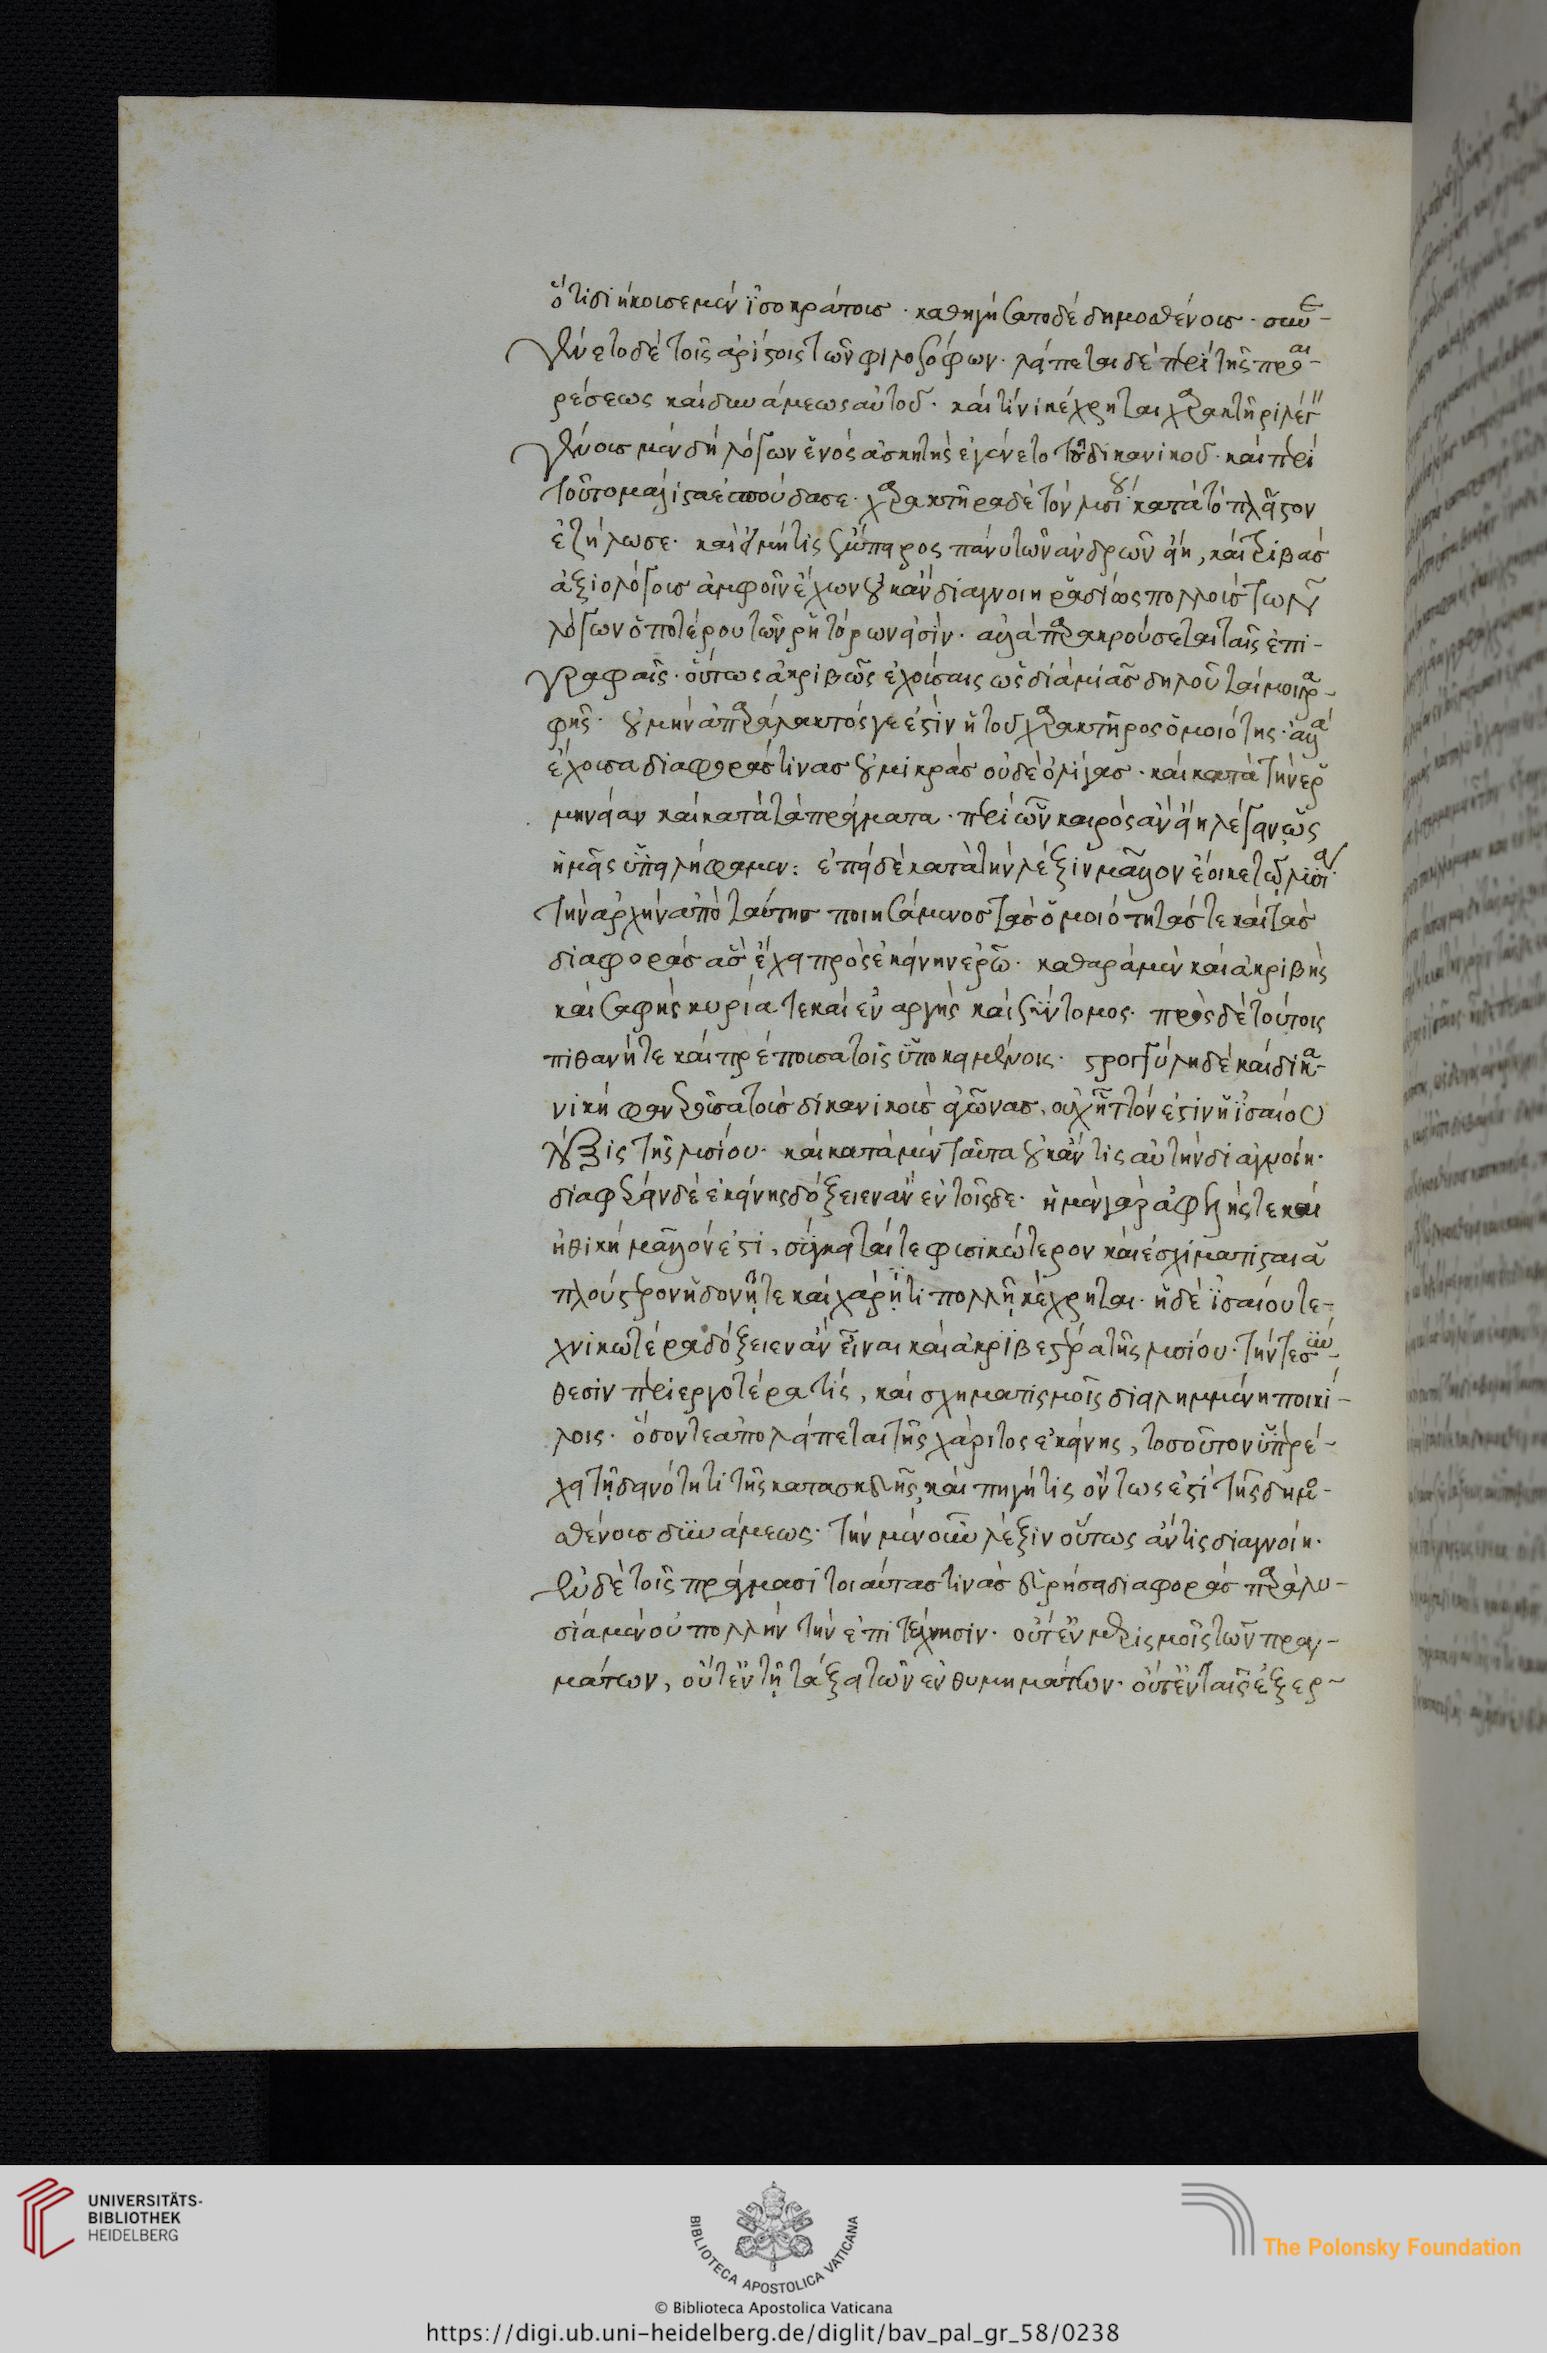 ὅτι διήκουσε μὲν ἰσοκράτους · καθηγήσατο δὲ δημοσθένους · συνε-
γένετο δὲ τοῖς ἀρίστοις τῶν φιλοσόφων · λείπεται δὲ περὶ τῆς προαι-
ρέσεως καὶ δυνάμεως αὐτοῦ · καὶ τίνι κέχρηται χαρακτῆρι λέγειν
γένους μὲν δὴ λόγων ἑνὸς ἀσκητὴς ἐγένετο τοῦ δικανικοῦ · καὶ περὶ
τοῦτο μάλιστα ἐσπούδασε · χαρακτῆρα δὲ τὸν λυσίου κατὰ τὸ πλεῖστον
ἐζήλωσε · καὶ εἰ μή τις ἔμπειρος πάνυ τῶν ἀνδρῶν εἴη, καὶ τριβὰς
ἀξιολόγους ἀμφοῖν ἔχων οὐκ ἂν διαγνοίη ῥαδίως πολλοὺς τῶν
λόγων ὁποτέρου τῶν ῥητόρων εἰσίν · ἀλλὰ παρακρούσεται ταῖς ἐπι-
γραφαῖς · οὕτως ἀκριβῶς ἐχούσαις ὡς διὰ μιᾶς δηλοῦταί μοι γρα-
φῆς · οὐ μὴν ἀπαράλακτός γε ἐστὶν ἡ τοῦ χαρακτῆρος ὁμοιότης · ἀλλ'
ἔχουσα διαφοράς τινας οὐ μικρὰς οὐδὲ ὀλίγας · καὶ κατὰ τὴν ἑρ
μηνείαν καὶ κατὰ τὰ πράγματα · περὶ ὧν καιρὸς ἂν εἴη λέγειν ὡς
ἡμεῖς ὑπειλήφαμεν : ἐπεὶ δὲ κατὰ τὴν λέξιν μᾶλλον ἔοικε τῷ λυσίᾳ
τὴν ἀρχὴν ἀπὸ ταύτης ποιησάμενος τὰς ὁμοιότητάς τε καὶ τὰς
διαφορὰς ἃς ἔχει πρὸς ἐκείνην ἐρῶ · καθαρὰ μὲν καὶ ἀκριβὴς
καὶ σαφὴς κυρία τε καὶ ἐναργὴς καὶ σύντομος · πρὸς δὲ τούτοις
πιθανή τε καὶ πρέπουσα τοῖς ὑποκειμένοις · στρογγύλη δὲ καὶ δικα-
νικὴ φανεροῦσα τοὺς δικανικοὺς ἀγῶνας, οὐχ ἧττόν ἐστιν ἡ ἰσαίου
λέξις τῆς λυσίου · καὶ κατὰ μὲν ταῦτα οὐκ ἄν τις αὐτὴν διαγνοίη ·
διαφέρειν δὲ ἐκείνης δόξειεν ἂν ἐν τοῖσδε · ἡ μὲν γὰρ ἀφελής τε καὶ
ἠθικὴ μᾶλλόν ἐστι, σύγκειταί τε φυσικώτερον καὶ ἐσχημάτισται ἁ
πλούστερον ἡδονῇ τε καὶ χάριτι πολλῇ κέχρηται · ἡ δὲ ἰσαίου τε-
χνικωτέρα δόξειεν ἂν εἶναι καὶ ἀκριβεστέρα τῆς λυσίου · τήν τε σύν-
θεσιν περιεργοτέρα τίς, καὶ σχηματισμοῖς διειλημμένη ποικί-
λοις · ὅσον τε ἀπολείπεται τῆς χάριτος ἐκείνης, τοσοῦτον ὑπερέ-
χει τῇ δεινότητι τῆς κατασκευῆς, καὶ πηγή τις ὄντως ἐστὶ τῆς δημο-
σθένους δυνάμεως · τὴν μὲν οὖν λέξιν οὕτως ἄν τις διαγνοίη ·
ἐν δὲ τοῖς πράγμασι τοιαύτας τινὰς εὑρήσει διαφορὰς παρὰ λυ-
σίᾳ μὲν οὐ πολλὴν τὴν ἐπιτέχνησιν · οὔτ' ἐν μερισμοῖς τῶν πραγ-
μάτων, οὔτ' ἐν τῇ τάξει τῶν ἐνθυμημάτων · οὔτ' ἐν ταῖς ἐξερ-
UNIVERSITÄTS-
BIBLIOTHEK
HEIDELBERG
BIBLIOTECA APOSTOLICA VATICANA
The Polonsky Foundation
© Biblioteca Apostolica Vaticana
https://digi.ub.uni-heidelberg.de/diglit/bav_pal_gr_58/0238